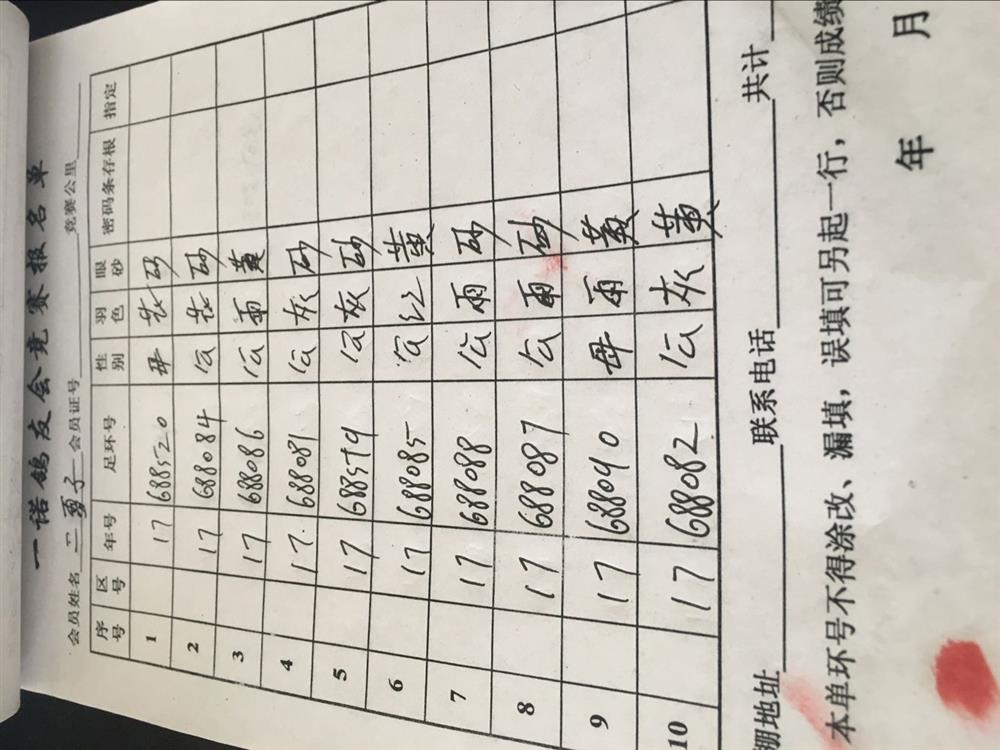 一诺鸽友会竞赛报名单
会员姓名 二勇子 会员证号 竞赛公里
序号 区号 年号 足环号 性别 羽色 眼砂 密码条存根 指定
1 17 688520 母 花 砂
2 17 688084 公 花 砂
3 17 688086 公 雨 黄
4 17. 688081 公 灰 砂
5 17 688579 公 灰 砂
6 17 688085 公 红 黄
7 17 688088 公 雨 砂
8 17 688087 公 雨 砂
9 17 688090 母 雨 黄
10 17 688082 公 灰 黄
棚地址 联系电话 共计
本单环号不得涂改、漏填，误填可另起一行，否则成绩
年 月